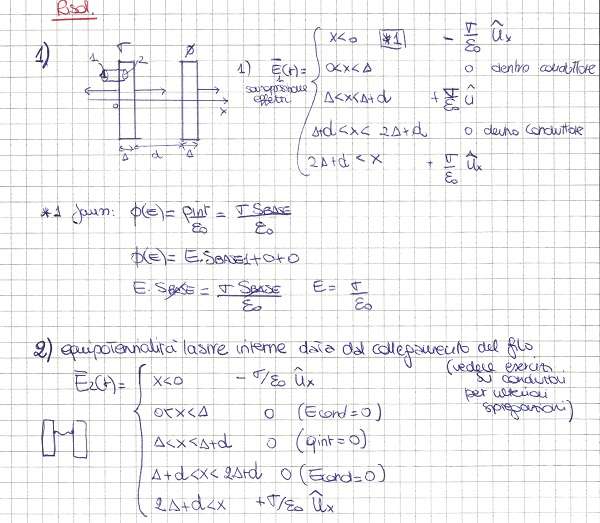 Risol.
1)
σ
ϕ
1
2
0
x
Δ
d
Δ
1) E₁(r) =
sovrapposizione effetti
x<0 *1 - σ/ε₀ ûx
0<x<Δ 0 dentro conduttore
Δ<x<Δ+d + σ/ε₀ û
Δ+d<x< 2Δ+d 0 dentro conduttore
2Δ+d < x + σ/ε₀ ûx
*1 Gauss: ϕ(E) = qint/ε₀ = σ SBASE/ε₀
ϕ(E) = E·SBASE1+0+0
E·SBASE = σ SBASE/ε₀ E = σ/ε₀
2) equipotenzialità lastre interne data dal collegamento del filo
(vedere esercizi su conduttori per ulteriori spiegazioni)
E₂(r) =
x<0 - σ/ε₀ ûx
0<x<Δ 0 (Econd=0)
Δ<x<Δ+d 0 (qint=0)
Δ+d<x<2Δ+d 0 (Econd=0)
2Δ+d<x +σ/ε₀ ûx